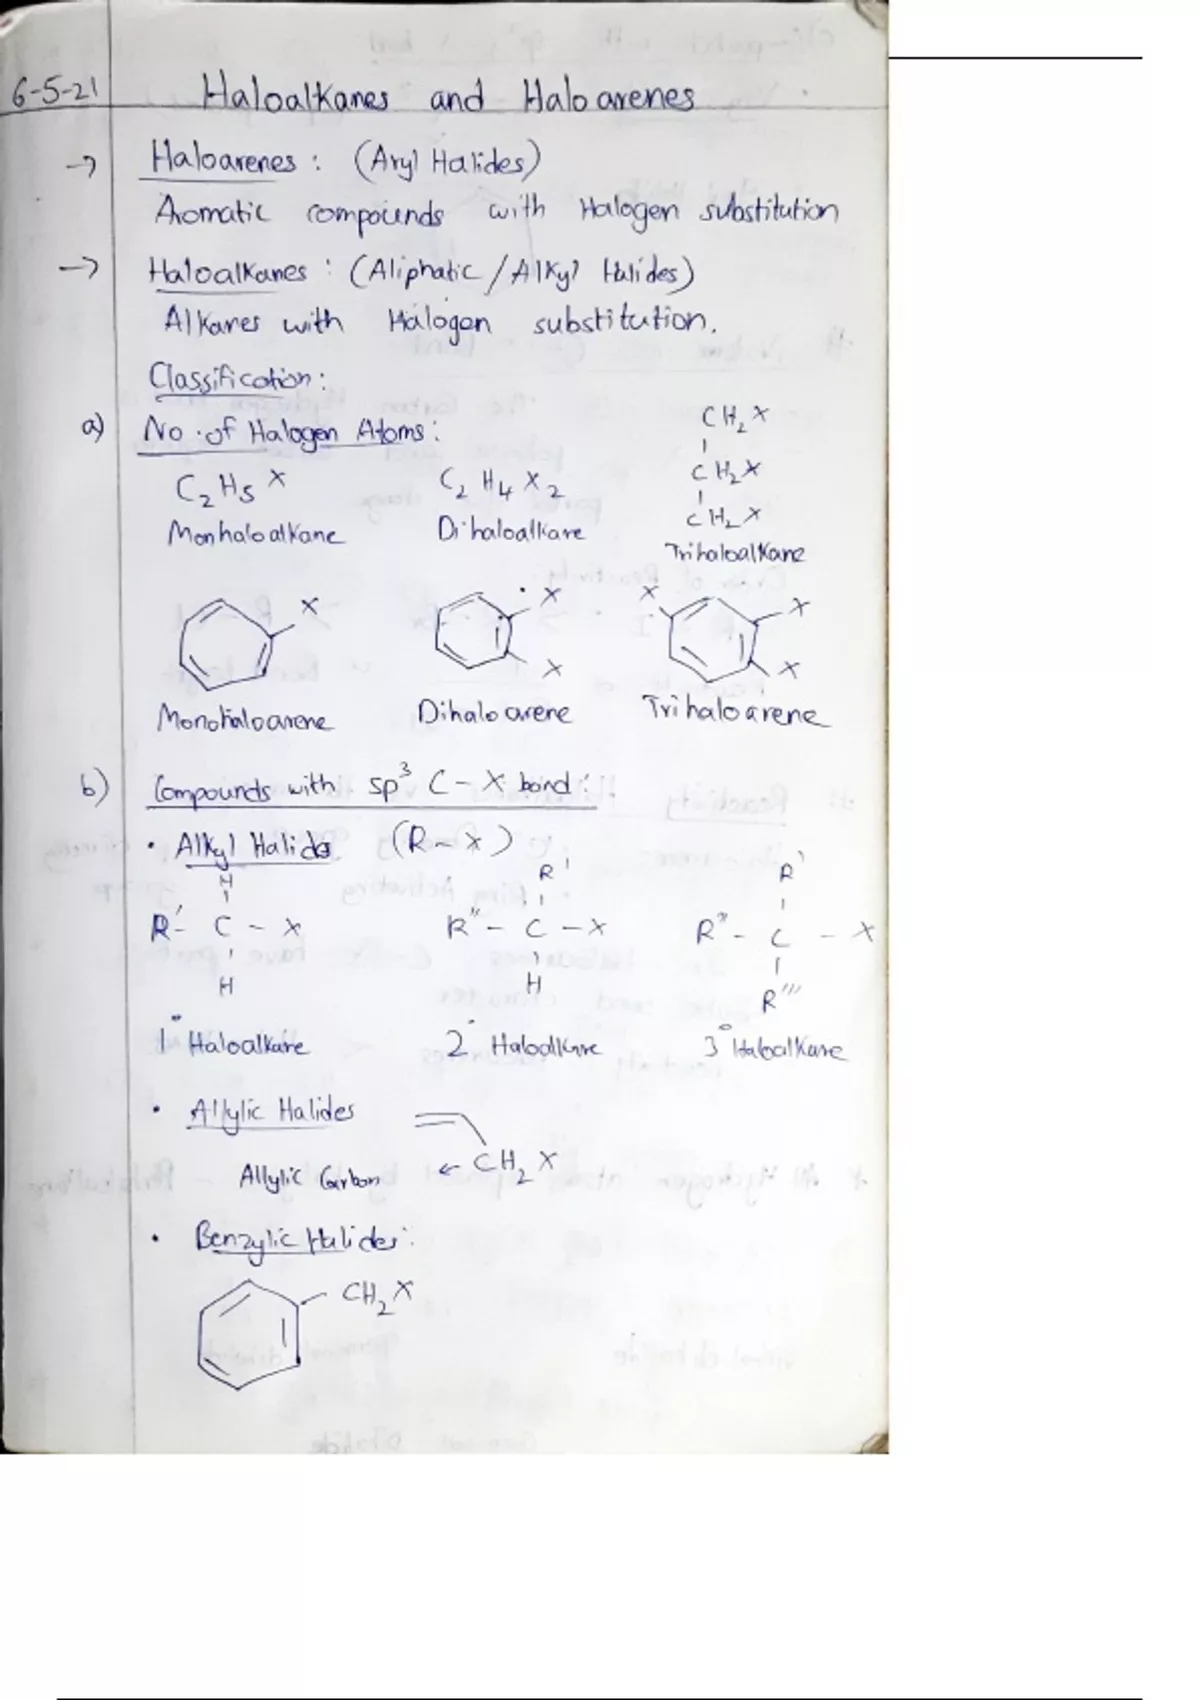 6-5-21 Haloalkanes and Haloarenes
→ Haloarenes : (Aryl Halides)
Aromatic compounds with Halogen substitution
→ Haloalkanes : (Aliphatic / Alkyl Halides)
Alkanes with Halogen substitution.
Classification:
a) No. of Halogen Atoms:
C2H5X C2H4X2 CH2X
CH2X
CH2X
Monhaloalkane Dihaloalkane Trihaloalkane
X X X X
X X
Monohaloarene Dihaloarene Trihaloarene
b) Compounds with sp³ C-X bond:
• Alkyl Halides (R-X)
H R' R'
R'- C - X R''- C - X R''- C - X
H H R'''
1° Haloalkane 2° Haloalkane 3° Haloalkane
• Allylic Halides
Allylic Carbon ← CH2X
• Benzylic Halides:
CH2X